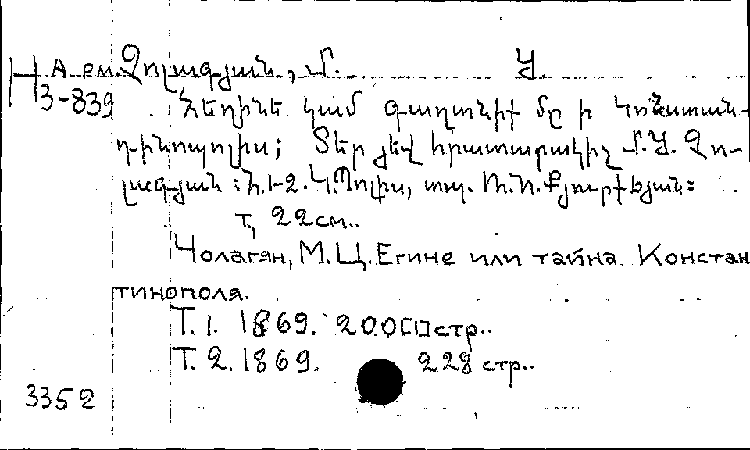 А рм Չոլագյան, Մ. Ց.
3-839 Հեղինե կամ գաղտնիք մը ի Կոնստան-
դինուպոլիս; Տեր և հրատարակիչ Մ.Ց. Չո-
լագյան: Հ.1-2. Կ.Պոլիս, տպ. Ռ.Ռ.Քյուրքչյան:
т, 22см..
Чолагян, М.Ц. Егине или тайна Констан
тинополя.
Т. 1. 1869. 200 стр..
Т. 2. 1869. 228 стр..
3352